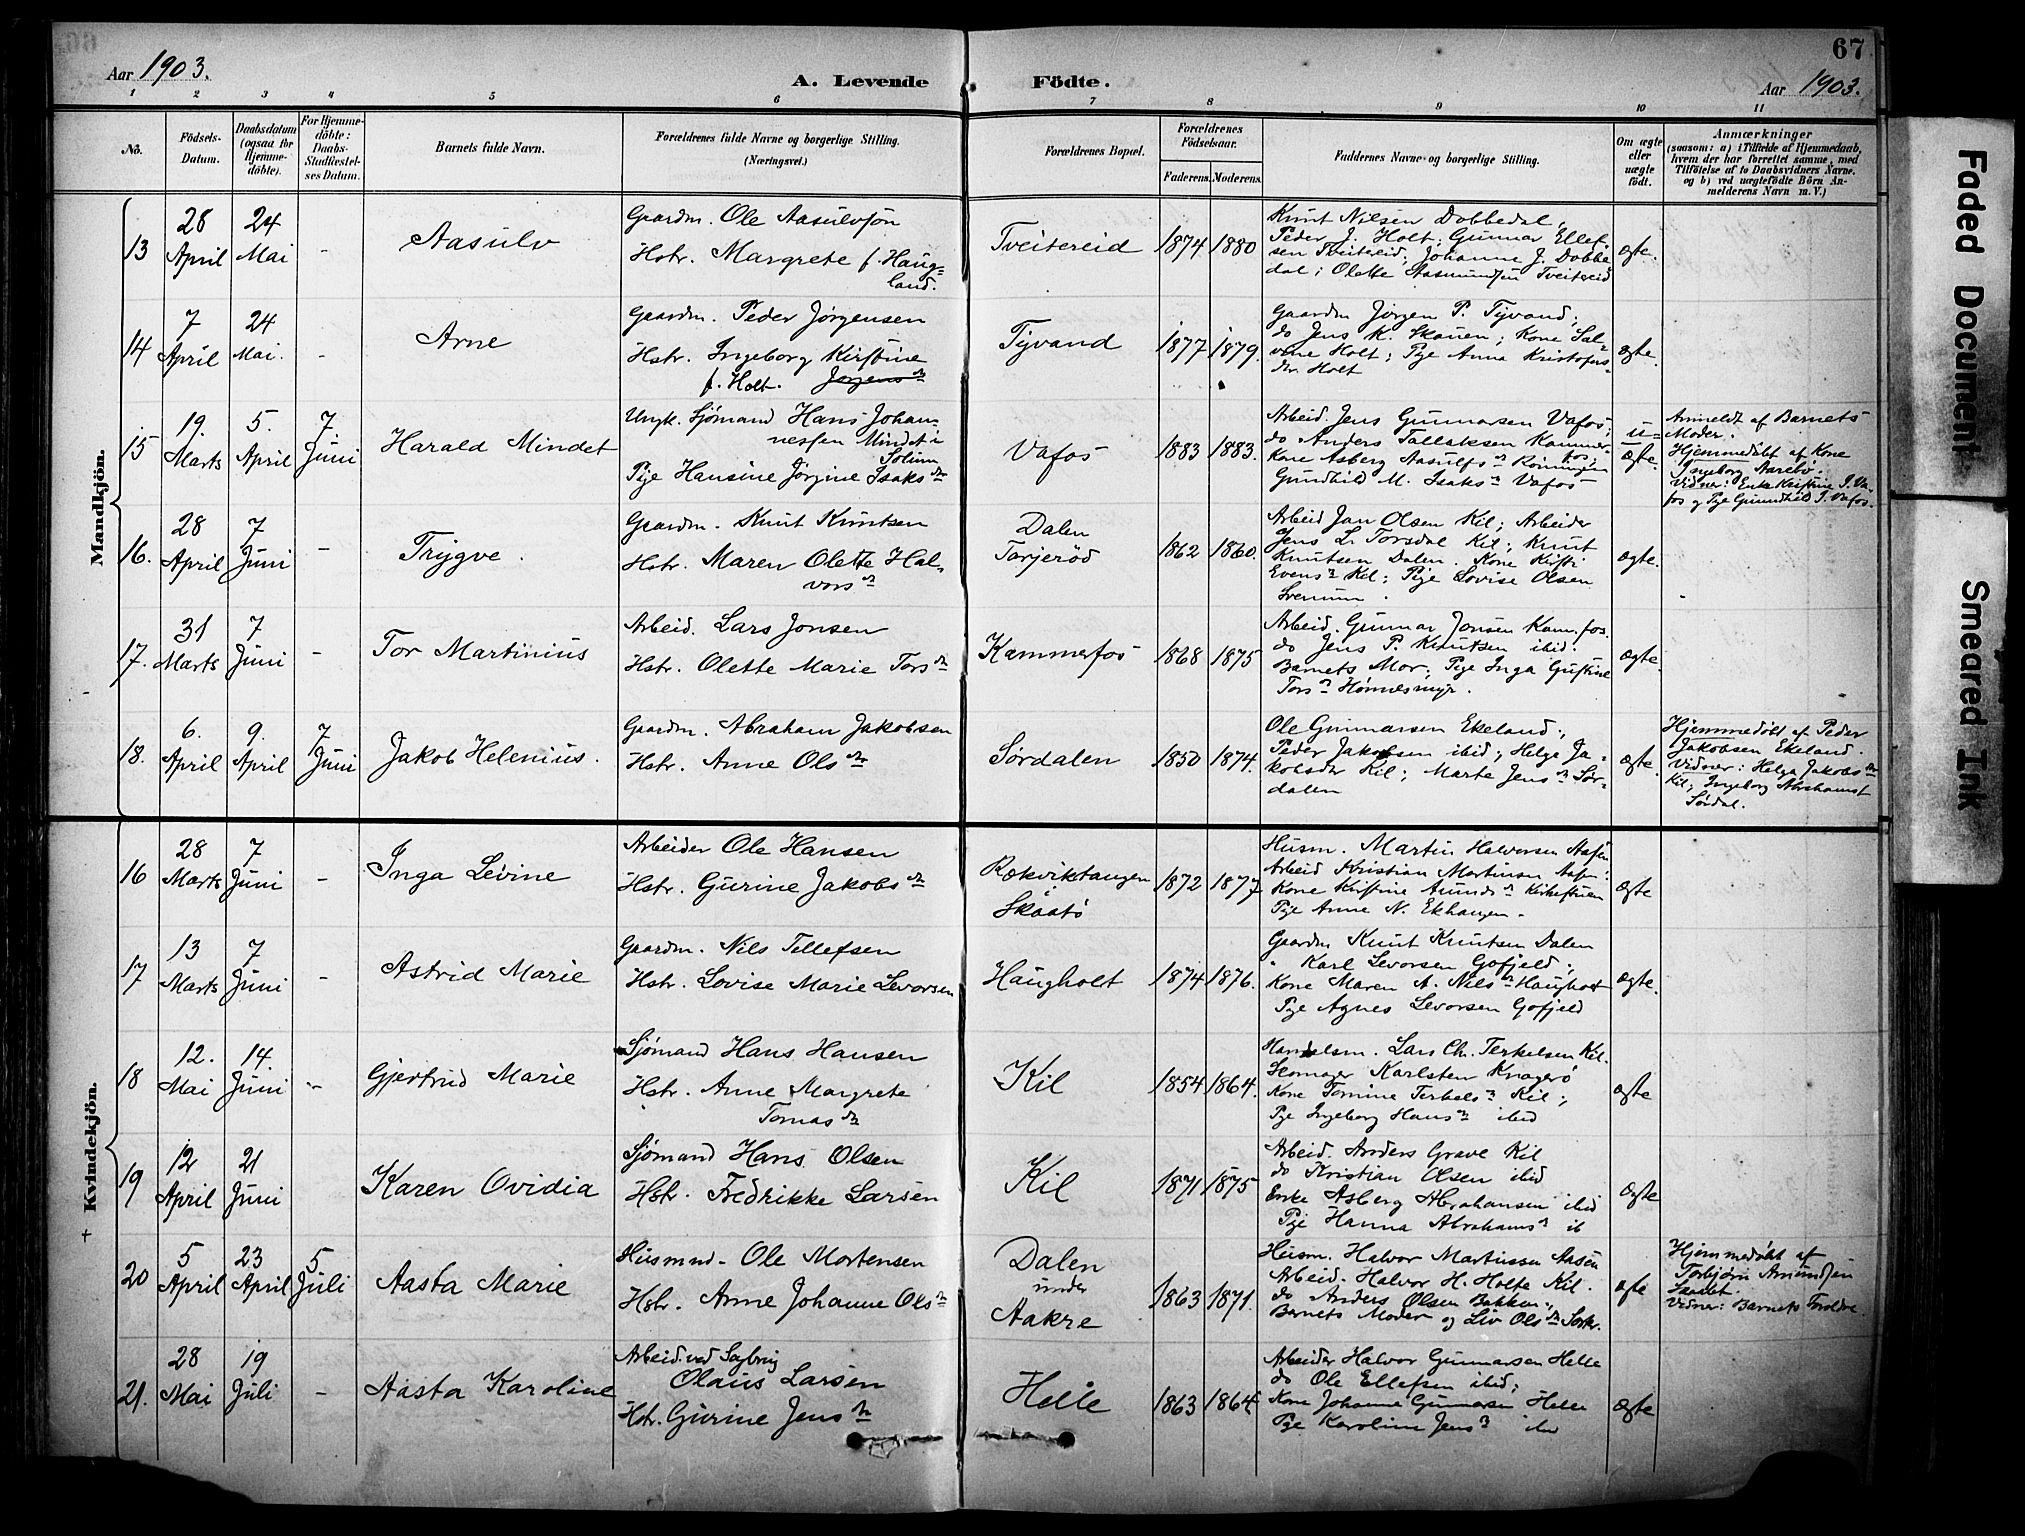 67
Aar 1903.
A. Levende Födte.
Aar 1903.
1 2 3 4 5 6 7 8 9 10 11
No.
Födsels-Datum.
Daabsdatum (ogsaa for Hjemme-döbte).
For Hjemme-döbte: Daabs-Stadfæstel-ses Datum.
Barnets fulde Navn.
Forældrenes fulde Navne og borgerlige Stilling. (Næringsvei.)
Forældrenes Bopæl.
Forældrenes Födselsaar.
Faderens. Moderens.
Faddernes Navne og borgerlige Stilling.
Om ægte eller uægte födt.
Anmærkninger
(saasom: a) i Tilfælde af Hjemmedaab,
hvem der har forrettet samme, med
Tilföielse af to Daabsvidners Navne.
og b) ved uægtefödte Börn An-
melderens Navn m. V.)
Mandkjön.
13 28 April 24 Mai - Aasulv
Gaardm. Ole Aasulvsøn
Hstr. Margrete f. Haug-
land.
Tveitereid 1874 1880
Knut Nilsen Dobbedal,
Peder J. Holt; Gunnar Ellef-
sen Tveitereid; Johanne J. Dobbe
dal; Olette Aasmundsen Tveitereid
ægte.
14 7 April 24 Mai. - Arne
Gaardm. Peder Jørgensen
Hstr. Ingeborg Kirstine
f. Holt. Jørgensdr
Tyvand 1877 1879.
Gaardm Jørgen P. Tyvand;
do Jens K. Skauen; Kone Sal-
vene Holt; Pige Anna Kristofers-
dr. Holt
ægte.
15 19. Marts 5. April 7. Juni Harald Mindet
Ungk. Sjømand Hans Johan-
nessen Mindet i
Solum
Pige Hansine Jørgine Isaksdr
Vafos 1883 1883.
Arbeid. Jens Gunnarsen Vafos;
do Anders Tallaksen Kammer-
fos;
Kone Asberg Aasulfsdr Rønningen
Gundhild M. Isaksdr Vafos
u-
ægte.
Anmeldt af Barnets
Moder.
Hjemmedøbt af Kone
Ingeborg Aarebo.
Vidner: Enke Kristine I. Va-
fos og Pige Gundhild I. Vafos.
16. 28 April 7 Juni - Trygve.
Gaardm. Knut Knutsen
Hstr. Maren Olette Hal-
vorsdr
Dalen
Torjeröd
1862 1860.
Arbeid Jan Olsen Kil; Arbeider
Jens L. Torsdal Kil; Knut
Knutsen Dalen. Kone Kirsti
Evensdr Kil; Pige Lovise Olsen
ægte.
17. 31 Marts 7 Juni - Tor Martinius
Arbeid. Lars Jonsen
Hstr. Olette Marie Torsdr
Kammerfos 1868 1875
Arbeid. Gunnar Jonsen Kam.fos.
do Jens P. Knutsen ibid.
Barnets Mor; Pige Inga Gustine
Torsdr Hønnesmyr.
ægte.
18. 6. April 9. April 7 Juni Jakob Helenius.
Gaardm. Abraham Jakobsen
Hstr. Anne Olsdr
Sørdalen 1850 1874.
Ole Gunnarsen Ekeland;
Peder Jakobsen ibid; Helga Ja-
kobsdr Kil; Marte Jensdr Sør-
dalen
ægte.
Hjemmedøbt af Peder
Jakobsen Ekeland.
Vidner: Helga Jakobsdr
Kil; Ingeborg Abrahamst
Sørdal.
Kvindekjön.
16 28 Marts 7 Juni - Inga Levine
Arbeider Ole Hansen
Hstr. Gurine Jakobsdr
Rækviktangen
Skaatø
1872 1877
Husm. Martin Halvorsen Aasen
Arbeid Kristian Martinsen Aasen:
Kone Kirstine Aamundsdr
Pige Anne N. Ekhaugen.
ægte
17 13 Marts 7 Juni - Astrid Marie
Gaardm. Nils Tellefsen
Hstr. Lovise Marie Levorsen
Haugholt 1874 1876.
Gaardm Knut Knutsen Dalen
" Karl Levorsen Gofjeld;
Kone Maren A. Nilsdr Haugholt
Pige Agnes Levorsen Gofjeld
ægte.
18 12. Mai 14. Juni - Gjertrud Marie
Sjømand Hans Hansen
Hstr. Anne Margrete
Tomasdr
Kil 1854 1864.
Handelsm. Lars Ch. Terkelsen Kil.
Skomager Karlsten Kragerø
Kone Tomine Terkelsdr Kil;
Pige Ingeborg Hansdr ibid
ægte
19 12 April 21 Juni Karen Ovidia
Sjømand Hans Olsen
Hstr. Fredrikke Larsen
Kil 1871 1875
Arbeid. Anders Grave Kil
do Kristian Olsen ibid
Enke Asberg Abrahamsen ibid
Pige Hanna Abrahamsdr ib
ægte
+
20 5 April 23 April 5 Juli Aasta Marie
Husmnd. Ole Mortensen
Hstr. Anne Johanne Olsdr
Dalen
under
Aakre
1863 1871.
Husm. Halvor Martinsen Aasen
Arbeid. Halvor H. Holte Kil.
do Anders Olsen Bakken;
Barnets Moder og Liv Olsdr
ægte
Hjemmedøbt af
Torbjørn Amundsen
Vidner: Barnets Forældre.
21. 28 Mai 19 Juli - Aasta Karoline
Arbeid. ved Sagbrug
Olaus Larsen
Hstr. Gurine Jensdr
Helle 1863 1864.
Arbeider Halvor Gunnarsen Helle
do Ole Ellefsen ibid;
Kone Johanne Gunnarsen Helle
Pige Karoline Jensdr ibid
ægte
Faded Document
Smeared Ink